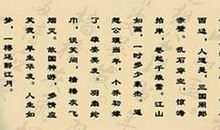 西边，人道是，三国周郎
赤壁。乱石穿空，惊涛
拍岸，卷起千堆雪。江山
如画，一时多少豪杰。遥
想公瑾当年，小乔初嫁
了，雄姿英发。羽扇纶
巾，谈笑间，樯橹灰飞
烟灭。故国神游，多情应
笑我，早生华发。人生如
梦，一樽还酹江月。